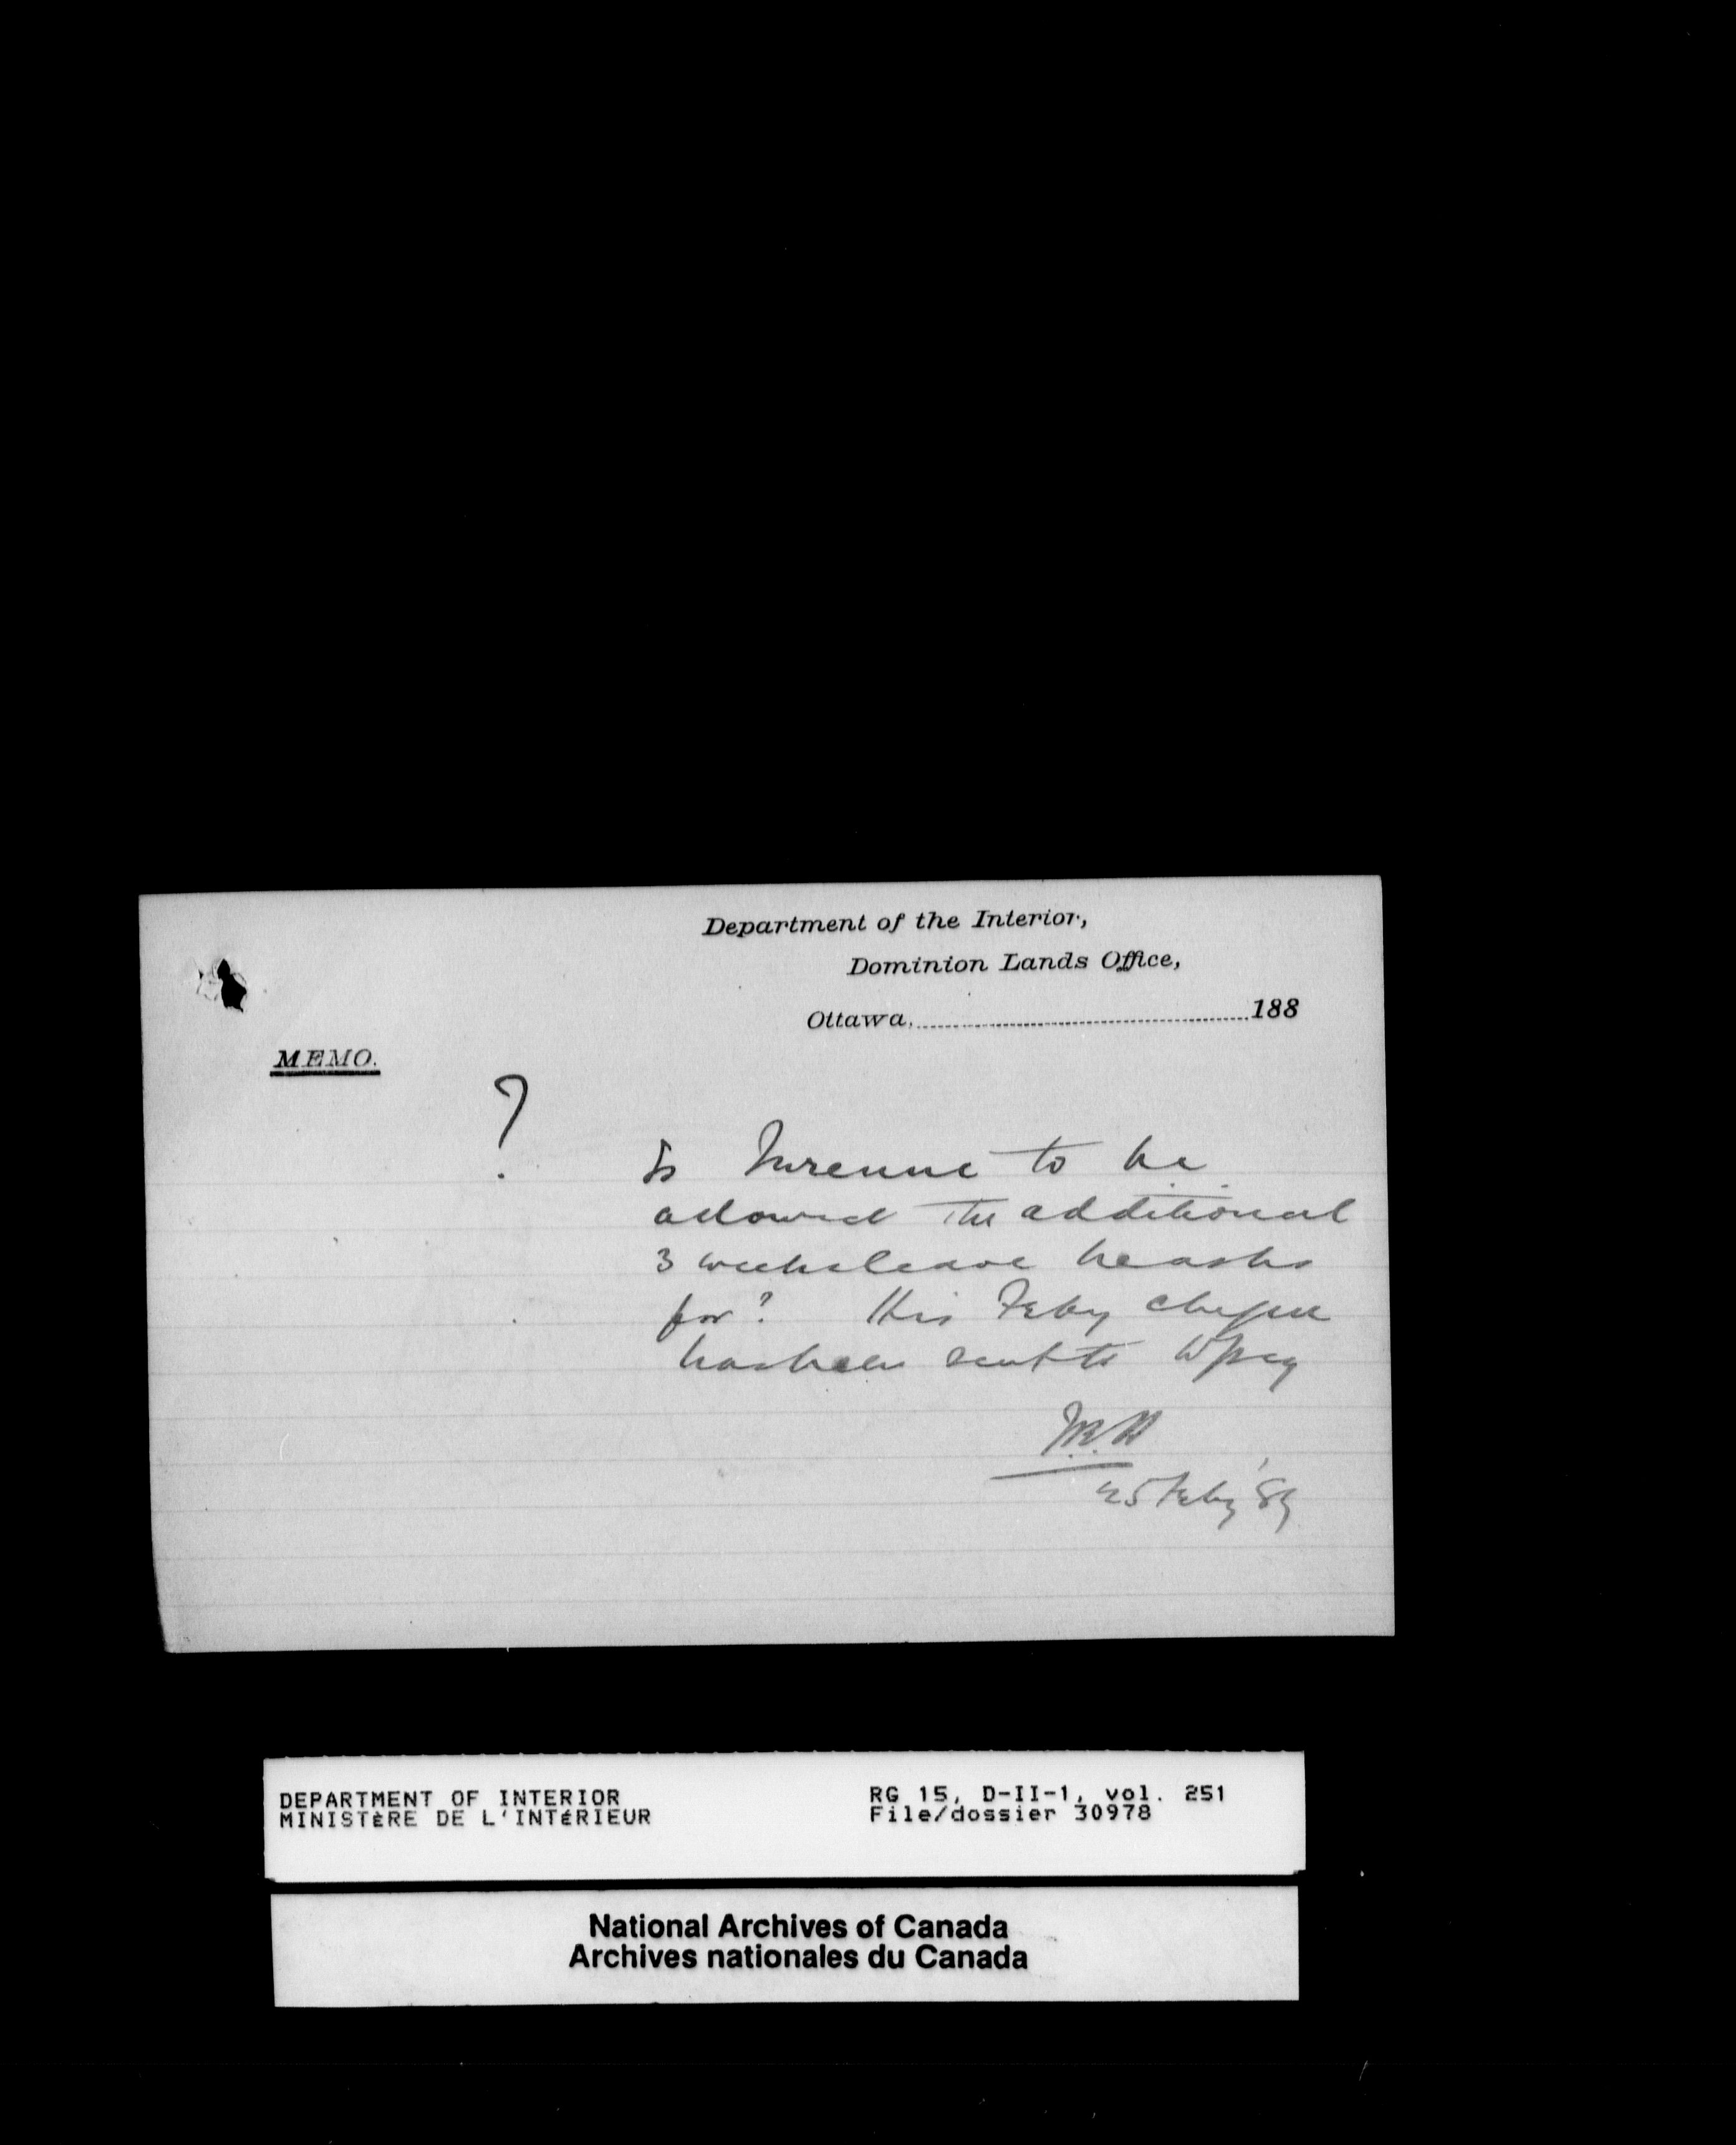 Department of the Interior,
Dominion Lands Office,
Ottawa, 188
MEMO.
?
Is Turenne to be
allowed the additional
3 weeks leave he asks
for? His Feby cheque
has been sent to Wpeg
25 Feby '89
DEPARTMENT OF INTERIOR
MINISTÈRE DE L'INTÉRIEUR
RG 15, D-II-1, vol. 251
File/dossier 30978
National Archives of Canada
Archives nationales du Canada